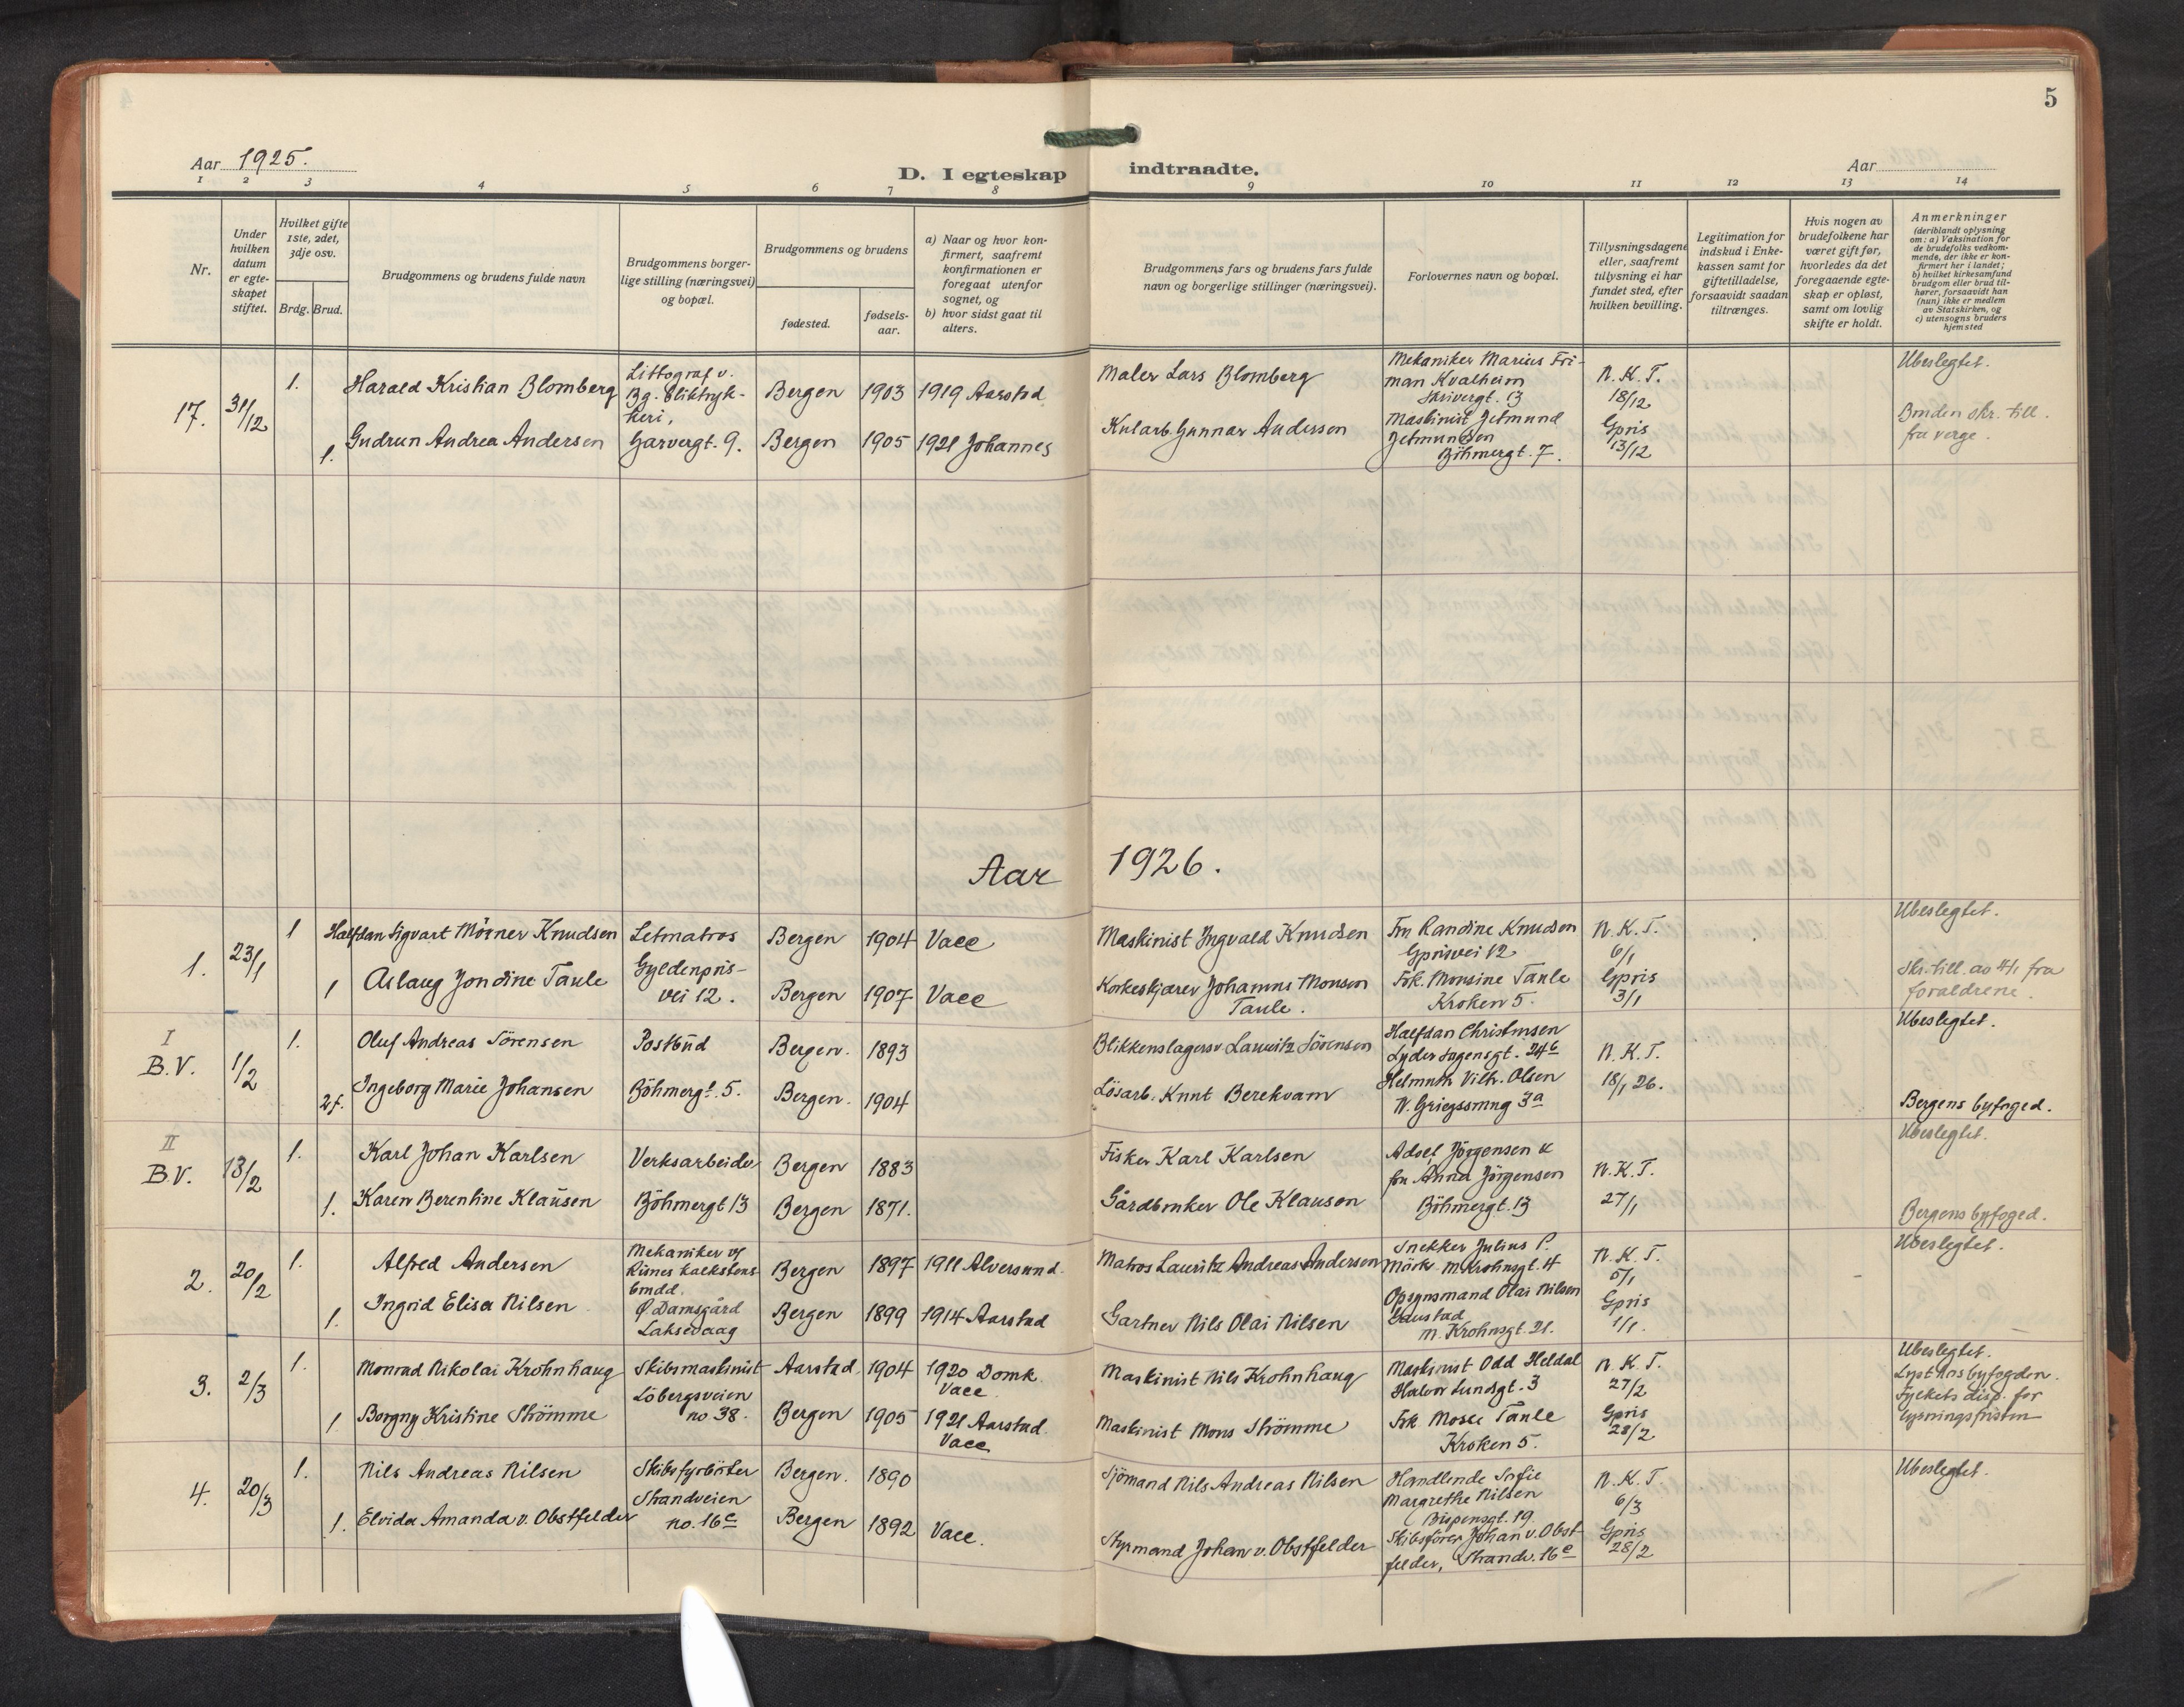 4
5
Aar 1925.
D. I egteskap indtraadte.
Aar
1 2 3 4 5 6 7 8 9 10 11 12 13 14
Nr.
Under hvilken datum er egteskapet stiftet.
Hvilket gifte 1ste, 2det, 3dje osv.
Brdg. Brud.
Brudgommens og brudens fulde navn
Brudgommens borgerlige stilling (næringsvei) og bopæl.
Brudgommens og brudens
fødested.
fødselsaar.
a) Naar og hvor konfirmert, saafremt konfirmationen er foregaat utenfor sognet, og
b) hvor sidst gaat til alters.
Brudgommens fars og brudens fars fulde navn og borgerlige stillinger (næringsvei).
Forlovernes navn og bopæl.
Tillysningsdagene eller, saafremt tillysning ei har fundet sted, efter hvilken bevilling.
Legitimation for indskud i Enkekassen samt for giftetilladelse, forsaavidt saadan tiltrænges.
Hvis nogen av brudefolkene har været gift før, hvorledes da det foregaaende egteskap er opløst, samt om lovlig skifte er holdt.
Anmerkninger
(deriblandt oplysning om: a) Vaksination for de brudefolks vedkommende, der ikke er konfirmert her i landet; b) hvilket kirkesamfund brudgom eller brud tilhører, forsaavidt han (hun) ikke er medlem av Statskirken, og c) utensogns bruders hjemsted
17. 31/12
1. Harald Kristian Blomberg
Littograf v. Bg. Bliktrykkeri,
Bergen 1903 1919 Aarstad
Maler Lars Blomberg
Mekaniker Marius Friman Kvalheim
Skrivergt. 13
N. K. T.
18/12
Ubeslegtet.
1. Gudrun Andrea Andersen
Garvergt. 9.
Bergen 1905 1921 Johannes
Kularb. Gunnar Andersen
Maskinist Jetmund Jetmundsen
Böhmergt. 7.
Gpris
13/12
Bruden skr. till. fra verge.
Aar 1926.
1. 23/1
1 Halfdan Sigvart Mörner Knudsen
Letmatros
Bergen 1904 Vacc
Maskinist Ingvald Knudsen
Fru Randine Knudsen
Gprisvei 12
N. K. T.
6/1
Ubeslegtet.
1 Aslaug Jondine Taule
Gyldenprisvei 12.
Bergen 1907 Vacc
Korkeskjærer Johannes Monsen Taule.
Frk. Monsine Taule
Kroken 5.
Gpris
3/1
Skr. till. av 4/1 fra forældrene.
I
B.V. 1/2
1. Oluf Andreas Sörensen
Postbud
Bergen. 1893
Blikkenslagersv. Lauritz Sörensen
Halfdan Christensen
Lyder Sagensgt. 24c
N. K. T.
18/1 26.
Ubeslegtet.
2f. Ingeborg Marie Johansen
Böhmergt. 5.
Bergen. 1904
Lösarb. Knut Berekvam
Helmuth Vilh. Olsen
N. Griegssmug 3a
Bergens byfoged.
II
B.V. 13/2
1. Karl Johan Karlsen
Verksarbeider
Bergen 1883
Fisker Karl Karlsen
Adolf Jörgensen &
fru Anna Jörgensen
N. K. T.
27/1
Ubeslegtet.
1. Karen Berentine Klausen
Böhmergt 13
Bergen 1871.
Gårdbruker Ole Klausen
Böhmergt. 13
Bergens byfoged.
2. 20/2
1. Alfred Andersen
Mekaniker v/
Risnes kalkstensbrudd.
Bergen 1897 1911 Alversund.
Matros Lauritz Andreas Andersen
Snekker Julius P. Mörk M. Krohnsgt. 4
N. K. T.
5/1
Ubeslegtet.
1. Ingrid Elisa Nilsen
Ø. Damsgård
Laksevaag
Bergen 1899 1914 Aarstad
Gartner Nils Olai Nilsen
Opsynsmand Olai Nilsen Gaustad
M. Krohnsgt. 21.
Gpris
1/1.
3. 2/3
1. Monrad Nikolai Krohnhaug
Skibsmaskinist
Aarstad 1904 1920 Domk.
Vacc
Maskinist Nils Krohnhaug
Maskinist Odd Heldal
Halvor Lundsgt. 3
N. K. T.
27/2
Ubeslegtet.
Lyst hos byfogden.
Fylkets disp. for lysningsfristen
1 Borgny Kristine Strömme
Löbergsveien
no 38.
Bergen 1905 1921 Aarstad.
Vacc
Maskinist Mons Strömme
Frk Mosse Taule
Kroken 5.
Gpris
28/2
4. 20/3
1. Nils Andreas Nilsen
Skibsfyrböter
Bergen. 1890
Sjömand Nils Andreas Nilsen
Handlende Sofie Margrethe Nilsen
Bispensgt. 19
N. K. T
6/3
Ubeslegtet.
1. Elvida Amanda v. Obstfelder
Strandveien
no. 16c
Bergen 1892 Vacc.
Styrmand Johan v. Obstfelder
Skibsförer Johan v. Obstfelder, Strandv. 16c
Gpris
28/2